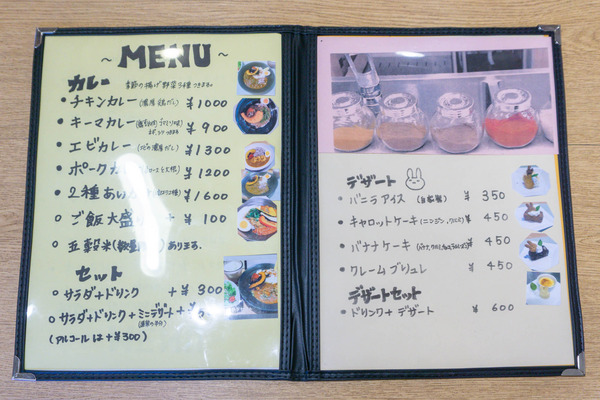 ~ MENU ~
カレー 季節の揚げ野菜5種つきます。
・チキンカレー(濃厚鶏だし) ¥1000
・キーマカレー ¥900
・エビカレー(エビの濃厚だし) ¥1300
・ポークカ ¥1200
・2種あいが ¥1600
・ご飯大盛 ¥100
・五穀米(数量 )あります。
セット
○ サラダ+ドリンク +¥300
○ サラダ+ドリンク+ミニデザート+¥
(通常の半分)
(アルコールは+¥300)
デザート
・バニラアイス (自家製) ¥350
・キャロットケーキ(ニンジン,クルミ) ¥450
・バナナケーキ ¥450
・クレームブリュレ ¥450
デザートセット
・ドリンク+デザート ¥600